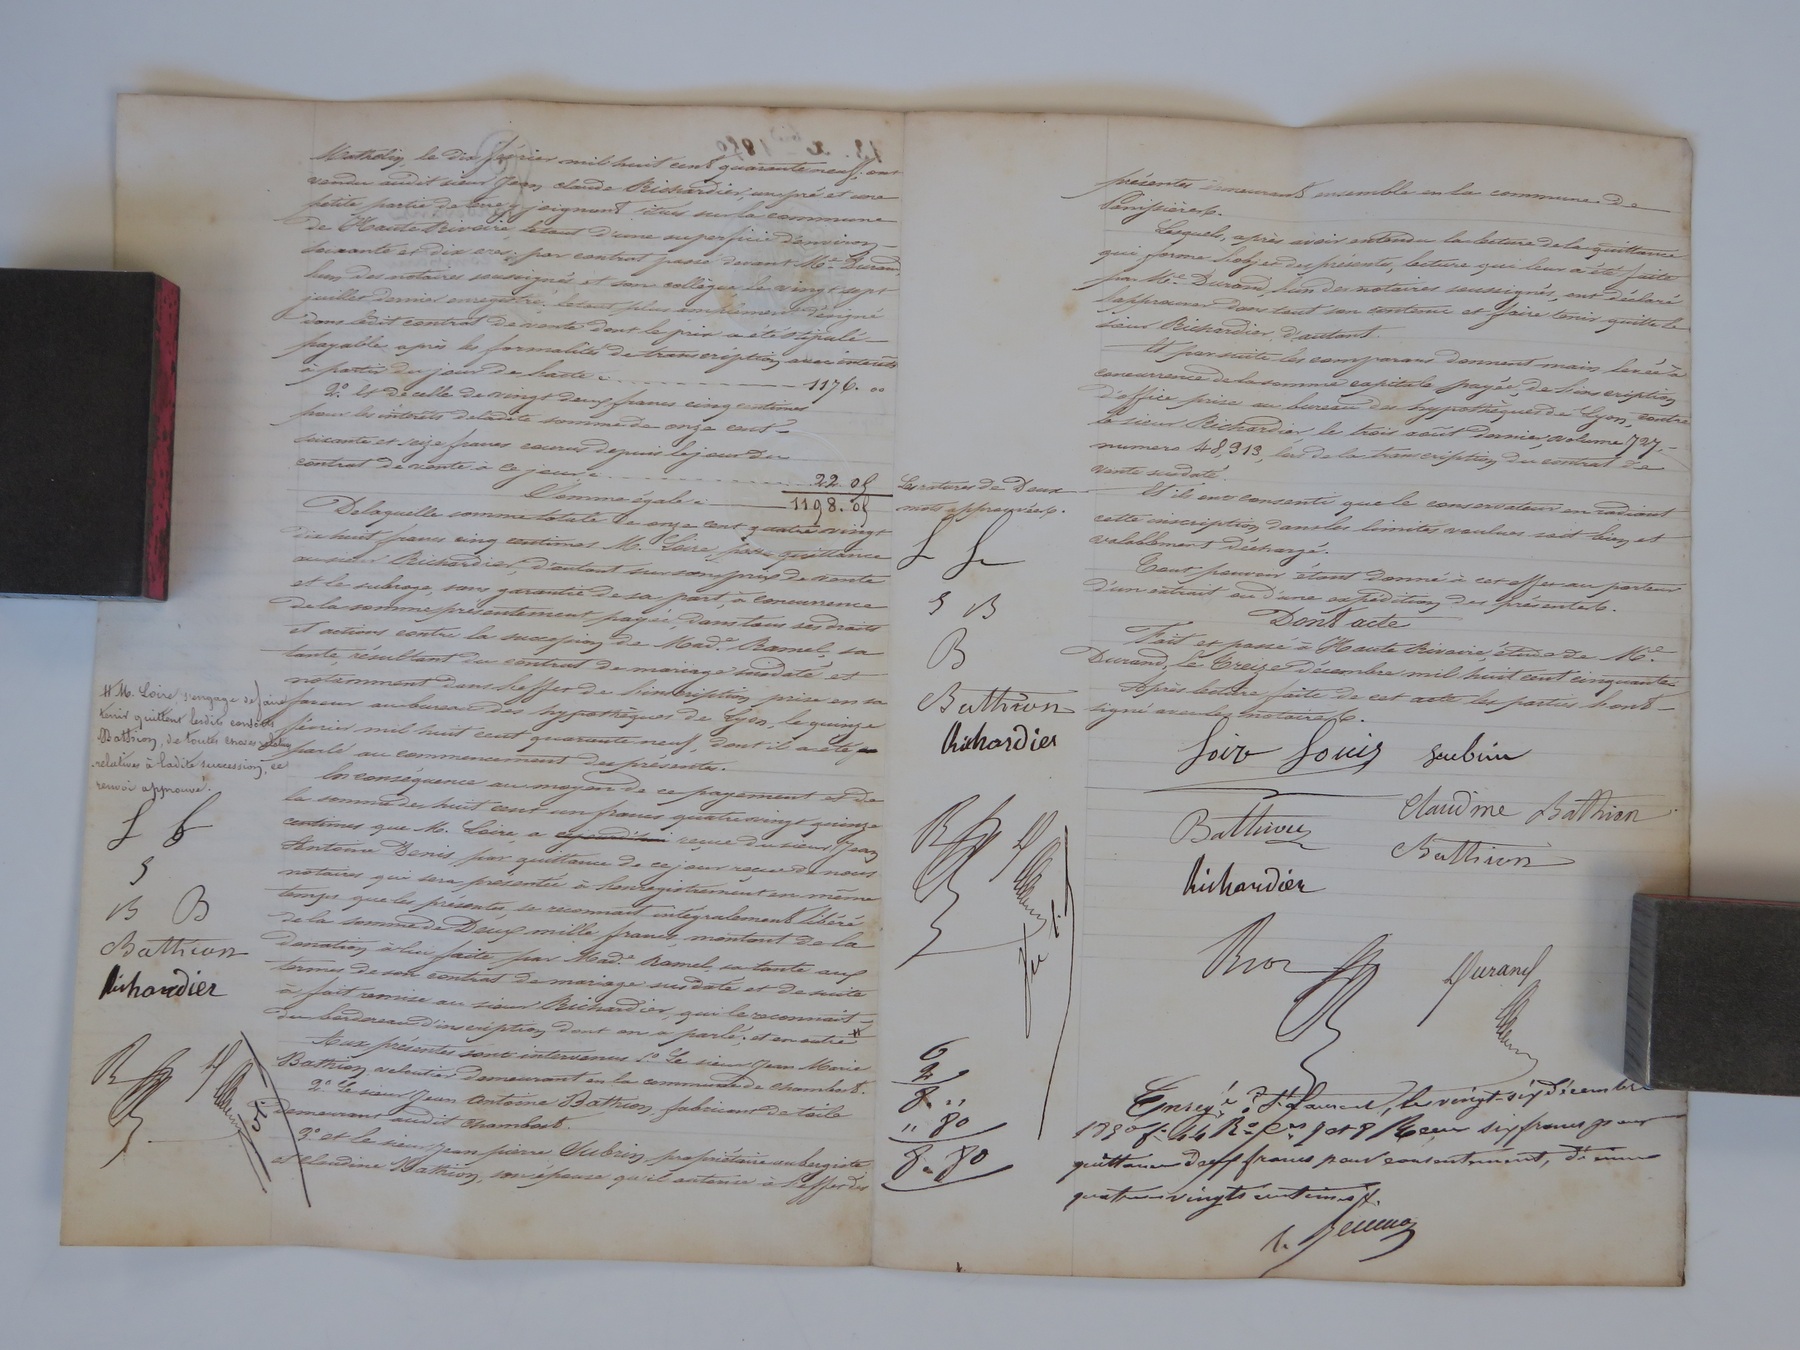 Mathelin, le dix février mil huit cent quarante neuf, ont
vendu audit sieur Jean Claude Richardier, un pré et une
petite partie de terre y joignant situés sur la commune
de Haute Rivoire, le tout d'une superficie d'environ
soixante et dix ares, par contrat passé devant Me Durand
l'un des notaires soussignés et son collègue le vingt sept
juillet dernier enregistré, le tout plus amplement désigné
dans ledit contrat de vente dont le prix a été stipulé
payable après les formalités de transcription avec intérêts
à partir du jour de l'acte ci 1176. 00
2º. Et de celle de vingt deux francs cinq centimes
pour les intérêts de ladite somme de onze cent
soixante et seize francs courus depuis le jour du
contrat de vente à ce jour ci 22. 05
Somme égale ci 1198. 05
De laquelle somme totale de onze cent quatre vingt
dix huit francs cinq centimes M. Loire, passe quittance
au sieur Richardier, d'autant sur son prix de vente
et le subroge, sans garantie de sa part, à concurrence
de la somme présentement payée, dans tous ses droits
et actions contre la succession de Made. Ramel, sa
tante, résultant du contrat de mariage susdaté et
notamment dans l'effet de l'inscription prise en sa
faveur au bureau des hypothèques de Lyon, le quinze
février mil huit cent quarante neuf, dont il a été
parlé au commencement des présentes.
En conséquence au moyen de ce payement et de
la somme de huit cent un francs quatre vingt quinze
centimes que M. Loire, a reçue du sieur Jean
Antoine Denis, par quittance de ce jour reçue de nous
notaires qui sera présentée à l'enregistrement en même
temps que les présentes, se reconnait intégralement libéré
de la somme de Deux mille francs, montant de la
donation à lui faite par Made. Ramel, sa tante aux
termes de son contrat de mariage susdaté et de suite
a fait remise au sieur Richardier, qui le reconnait
du bordereau d'inscription dont on a parlé, et en outre #
Aux présentes sont intervenus 1º. Le sieur Jean Marie
Bathion, veloutier demeurant en la commune de Chambost.
2º. Le sieur Jean Antoine Bathion, fabricant de toile
demeurant audit Chambost.
3º. et le sieur Jean pierre Subrin, propriétaire aubergiste
et Claudine Bathion, son épouse qu'il autorise à l'effet des
# M. Loire s'engage de faire
tenir quittent lesdits consorts
Bathion, de toutes choses
relatives à ladite succession, ce
renvoi approuvé.
L L
S
B B
Bathion
Richardier
Les ratures de Deux
mots approuvées.
L L
S B
B
Bathion
Richardier
6
2
8. "
" 80
8. 80
présentes demeurant ensemble en la commune de
Panissières.
Lesquels, après avoir entendu la lecture de la quittance
qui forme l'objet des présentes, lecture qui leur a été faite
par Me. Durand, l'un des notaires soussignés, ont déclaré
l'approuver dans tout son contenu et faire tenir quitte le
sieur Richardier, d'autant.
Et par suite les comparans donnent main levée à
concurrence de la somme capitale payée, de l'inscription
d'office prise au bureau des hypothèques de Lyon, contre
le sieur Richardier, le trois août dernier, volume 727,
numero 48,913, lors de la transcription du contrat de
vente susdaté.
Et ils ont consenti que le conservateur en radiant
cette inscription dans les limites voulues soit bien et
valablement déchargé.
Tout pouvoir étant donné à cet effet au porteur
d'un extrait ou d'une expédition des présentes.
Dont acte
Fait et passé à Haute Rivoire, étude de Me.
Durand, le Treize décembre mil huit cent cinquante
Après lecture faite de cet acte les parties l'ont
signé avec les notaires.
Loire Louis Subrin
Bathion Claudine Bathion
Bathion
Richardier
Durand
Enregé à St Laurent, le vingt-six décembre
1850 fo 44 Ro Ces 7 et 8 Reçu six francs pour
quittance deux francs pour consentement, décime
quatre-vingts centimes.